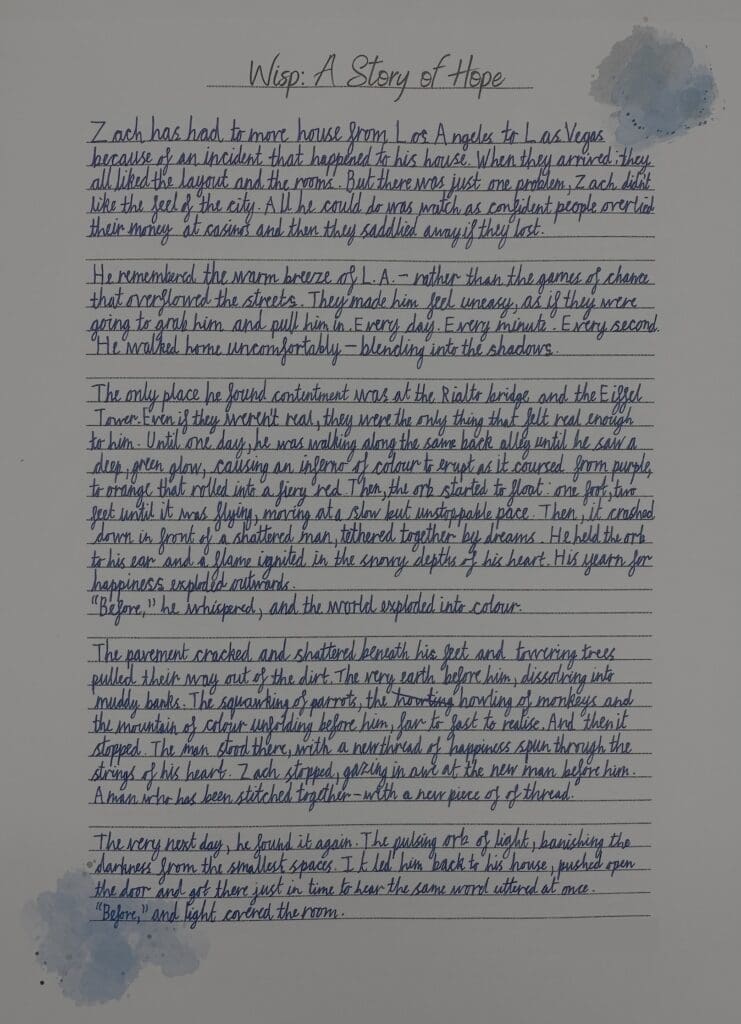 Wisp: A Story of Hope
Zach has had to move house from Los Angeles to Las Vegas
because of an incident that happened to his house. When they arrived; they
all liked the layout and the rooms. But there was just one problem, Zach didn't
like the feel of the city. All he could do was watch as confident people
their money at casinos and then they saddlied away if they lost.
He remembered the warm breeze of L.A. – rather than the games of chance
that overflowed the streets. They made him feel uneasy, as if they were
going to grab him and pull him in. Every day. Every minute. Every second.
He walked home uncomfortably – blending into the shadows.
The only place he found contentment was at the Rialto bridge and the Eiffel
Tower. Even if they weren't real, they were the only thing that felt real enough
to him. Until one day, he was walking along the same back alley until he saw a
deep, green glow, causing an inferno of colour to erupt as it coursed from purple,
to orange that rolled into a fiery red. Then, the orb started to float: one foot, two
feet until it was flying, moving at a slow but unstoppable pace. Then, it crashed
down in front of a shattered man, tethered together by dreams. He held the orb
to his ear and a flame ignited in the snowy depths of his heart. His yearn for
happiness exploded outwards.
"Before," he whispered, and the world exploded into colour.
The pavement cracked and shattered beneath his feet and towering trees
pulled their way out of the dirt. The very earth before him, dissolving into
muddy banks. The squawking of parrots, the howling of monkeys and
the mountain of colour unfolding before him, far to fast to realise. And then it
stopped. The man stood there, with a new thread of happiness spun through the
strings of his heart. Zach stopped, gazing in awe at the new man before him.
A man who has been stitched together – with a new piece of of thread.
The very next day, he found it again. The pulsing orb of light, banishing the
darkness from the smallest spaces. It led him back to his house, pushed open
the door and got there just in time to hear the same word uttered at once.
"Before," and light covered the room.